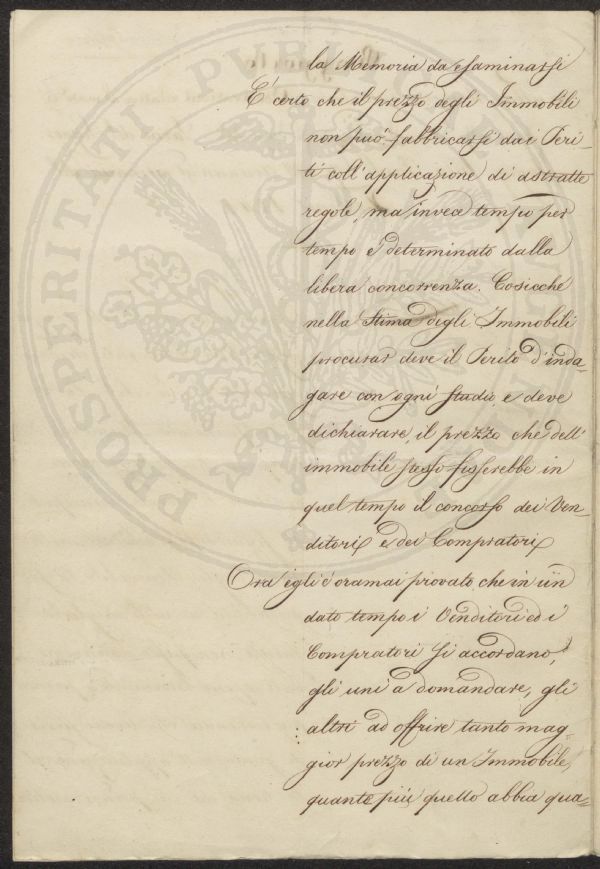 la Memoria da esaminarsi
E' certo che il prezzo degli Immobili
non può fabbricarsi dai Peri-
ti coll'applicazione di astratte
regole, ma invece tempo per
tempo è determinato dalla
libera concorrenza. Cosicché
nella Stima degli Immobili
procurar deve il Perito d'inda-
gare con ogni studio, e deve
dichiarare il prezzo che dell'
immobile stesso fisserebbe in
quel tempo il concorso dei Ven-
ditori e dei Compratori
Ora egli è oramai provato che in un
dato tempo i Venditori ed i
Compratori si accordano,
gli uni a domandare, gli
altri ad offrire tanto mag-
gior prezzo di un Immobile,
quanto più quello abbia qua-
PROSPERITATI PUBL